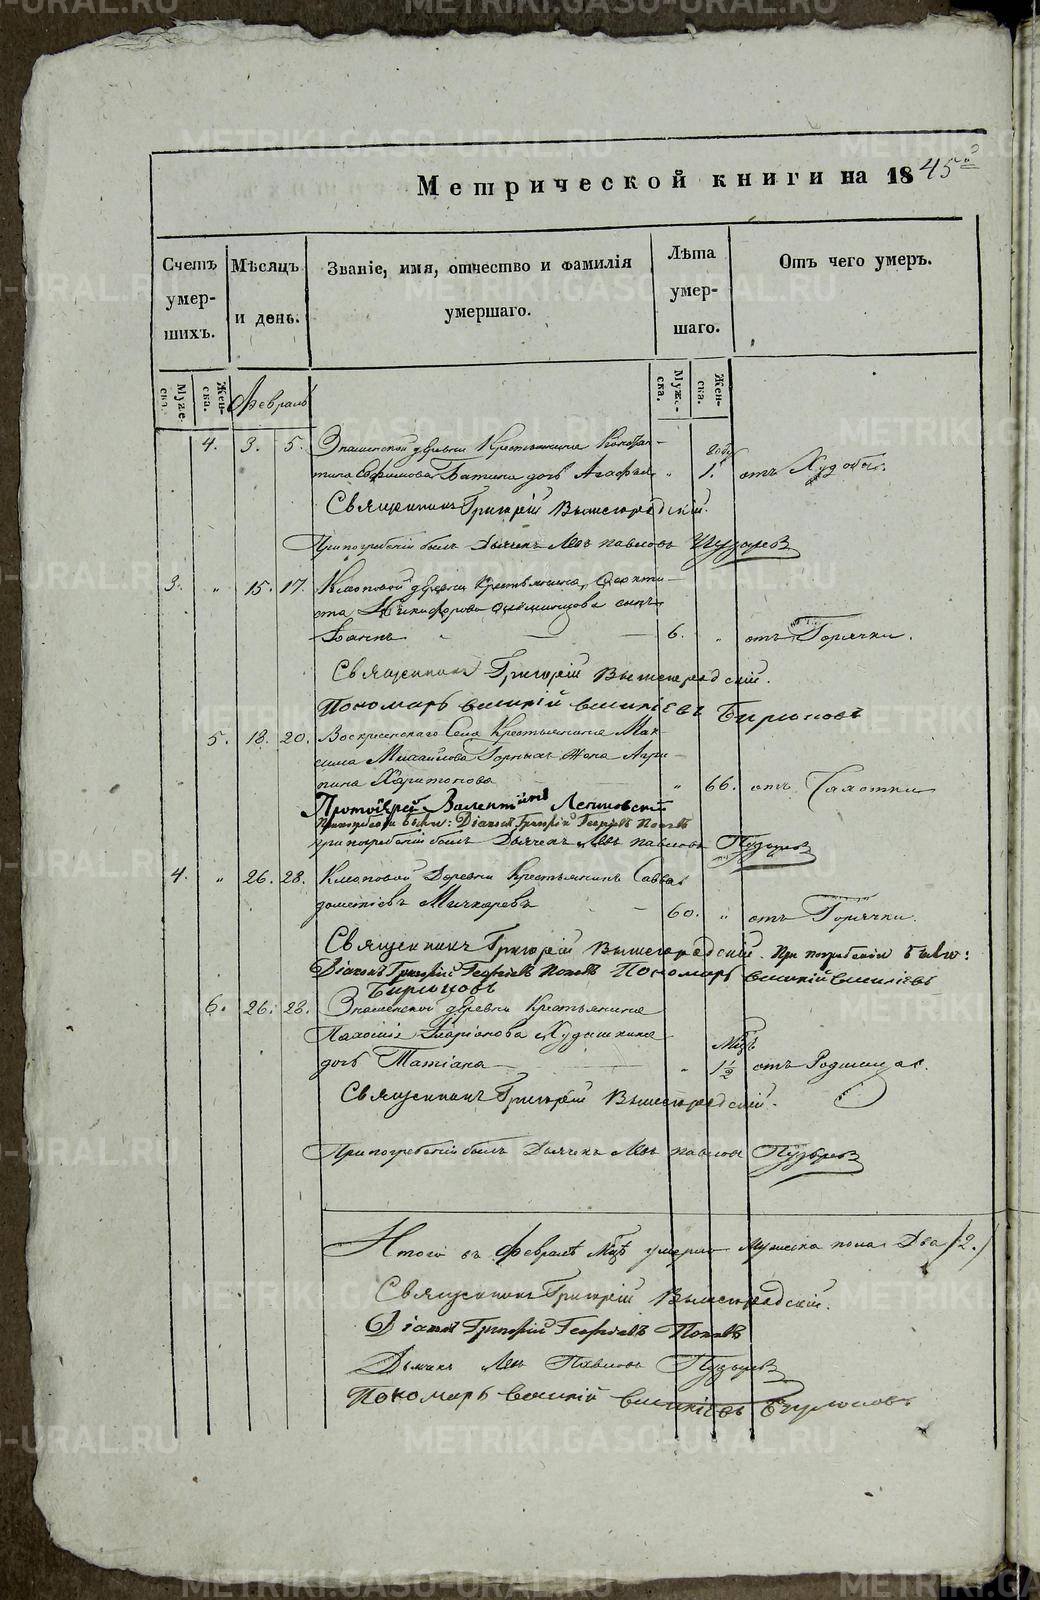 Метрической книги на 1845й
Счетъ умер-шихъ.
Мѣсяцъ и день.
Званіе, имя, отчество и фамилія умершаго.
Лѣта умер-шаго.
Отъ чего умеръ.
Муже-ска.
Жен-ска.
Февраль
Муже-ска.
Жен-ска.
4. 3. 5. Знаменской деревни Крестьянина Констан-
тина Ефимова Батина дочь Агафья „ 1. отъ Худобы.
Священникъ Григорій Вышегородскій.
При погребеніи былъ Дьячекъ Левъ Павловъ Пузыревъ
3. „ 15. 17. Клеповой деревни Крестьянина Феокти-
ста Никифорова сынъ
Іоаннъ 6. „ отъ Горячки.
Священникъ Григорій Вышегородскій.
Пономарь Василій Василіевъ Бирюковъ
5. 18. 20. Воскресенскаго Села Крестьянина Мак-
сима Михайлова Горныхъ жена Агри-
пина Харитонова „ 66. отъ Чахотки
Протоіерей Валентинъ
При погребеніи были: Діаконъ Григорій Георгіевъ Поповъ
при погребеніи былъ Дьячекъ Левъ Павловъ Пузыревъ
4. „ 26. 28. Клеповой Деревни Крестьянинъ Савва
дометіевъ Мичкаревъ 60. „ отъ Горячки.
Священникъ Григорій Вышегородскій. При погребеніи были:
Діаконъ Григорій Георгіевъ Поповъ Пономарь Василій Василіевъ
Бирюковъ
6. 26. 28. Знаменской деревни Крестьянина
Пахомія Иларіонова Худышкина
дочь Татіана „ 1½ отъ Родимца.
Священникъ Григорій Вышегородскій.
При погребеніи былъ Дьячекъ Левъ Павловъ Пузыревъ
Итого въ Февралѣ Мцѣ умерло Мужеска пола Два /2./
Священникъ Григорій Вышегородскій.
Діаконъ Григорій Георгіевъ Поповъ
Дьячекъ Левъ Павловъ Пузыревъ
Пономарь Василій Василіевъ Бирюковъ
METRIKI.GASO-URAL.RU